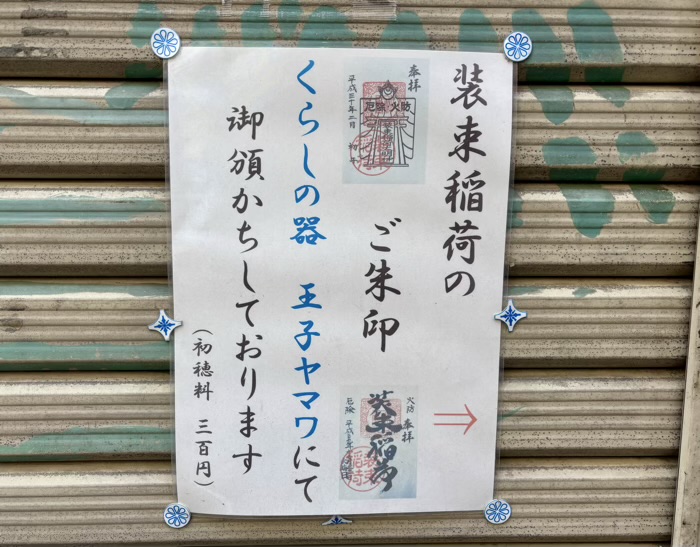 装束稲荷の
ご朱印
奉拝
厄除 火防
平成三十年二月
火防 奉拝
装束稲荷
厄除
くらしの器 王子ヤマワにて
御頒かちしております
(初穂料 三百円)